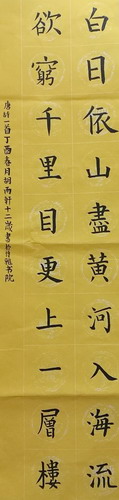 白日依山盡黃河入海流
欲窮千里目更上一層樓
唐詩一首丁酉春月胡雨軒十二歲書於佳雅书院